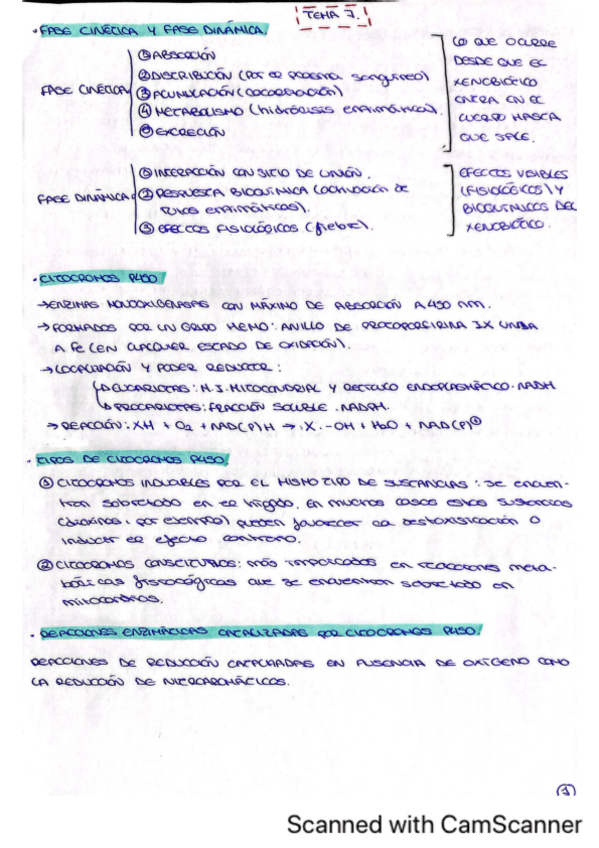 TEMA 7.
· FASE CINÉTICA Y FASE DINÁMICA.
FASE CINÉTICA
① ABSORCIÓN
② DISTRIBUCIÓN (POR EL sistema sanguíneo)
③ ACUMULACIÓN
④ METABOLISMO (hidrólisis enzimática).
⑤ EXCRECIÓN
LO QUE OCURRE
DESDE QUE EL
XENOBIÓTICO
ENTRA EN EL
CUERPO HASTA
QUE SALE.
FASE DINÁMICA
① INTERACCIÓN CON SITIO DE UNIÓN.
② RESPUESTA BIOQUÍMICA (activación de
rutas enzimáticas).
③ EFECTOS FISIOLÓGICOS (fiebre).
EFECTOS VISIBLES
(FISIOLÓGICOS) Y
BIOQUÍMICOS DEL
XENOBIÓTICO.
· CITOCROMOS P450
→ ENZIMAS MONOOXIGENASAS CON MÁXIMO DE ABSORCIÓN A 450 nm.
→ FORMADOS POR UN GRUPO HEMO: ANILLO DE PROTOPORFIRINA IX UNIDA
A Fe (EN CUALQUIER ESTADO DE OXIDACIÓN).
→ LOCALIZACIÓN Y PODER REDUCTOR:
↳ EUCARIOTAS: M.I. MITOCONDRIAL Y RETÍCULO ENDOPLASMÁTICO. NADH
↳ PROCARIOTAS: FRACCIÓN SOLUBLE. NADPH.
→ REACCIÓN: XH + O₂ + NAD(P)H → X-OH + H₂O + NAD(P)⊕
· TIPOS DE CITOCROMOS P450
① CITOCROMOS INDUCIBLES POR EL MISMO TIPO DE SUSTANCIAS: se encuen-
tran sobretodo en el hígado. en muchos casos estas sustancias
(dioxinas, por ejemplo) pueden favorecer la destoxificación o
inducir el efecto contrario.
② CITOCROMOS CONSTITUTIVOS: más implicados en reacciones meta-
bólicas fisiológicas que se encuentran sobretodo en
mitocondrias.
· REACCIONES ENZIMÁTICAS CATALIZADAS POR CITOCROMOS P450.
REACCIONES DE REDUCCIÓN CATALIZADAS EN AUSENCIA DE OXÍGENO COMO
LA REDUCCIÓN DE NITROAROMÁTICOS.
①
Scanned with CamScanner